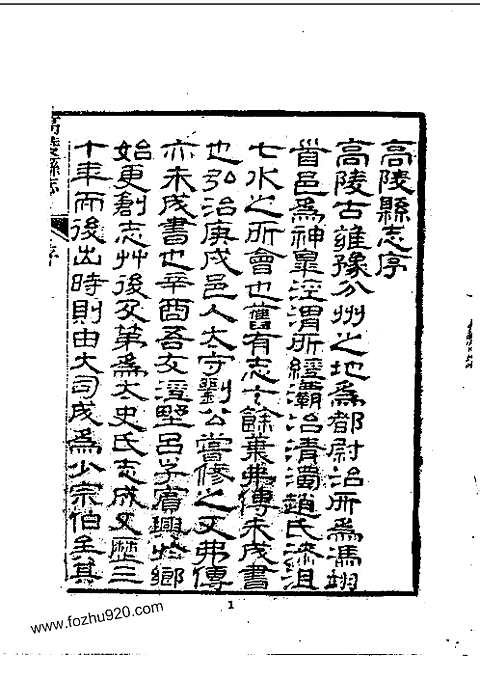 高陵縣志序
高陵古雍豫分州之地為都尉治所為馮翊
首邑為神皐涇渭所經灞滻清濁趙氏渠沮
七水之所會也舊有志七餘葉弗傳未成書
也弘治庚戌邑人太守劉公嘗修之又弗傳
亦未成書也辛酉吾友涇野呂子賓興於鄉
始更創志艸後及第為太史氏志成又歷三
十年而後出時則由大司成為少宗伯至其
高陵縣志
序
1
www.fozhu920.com